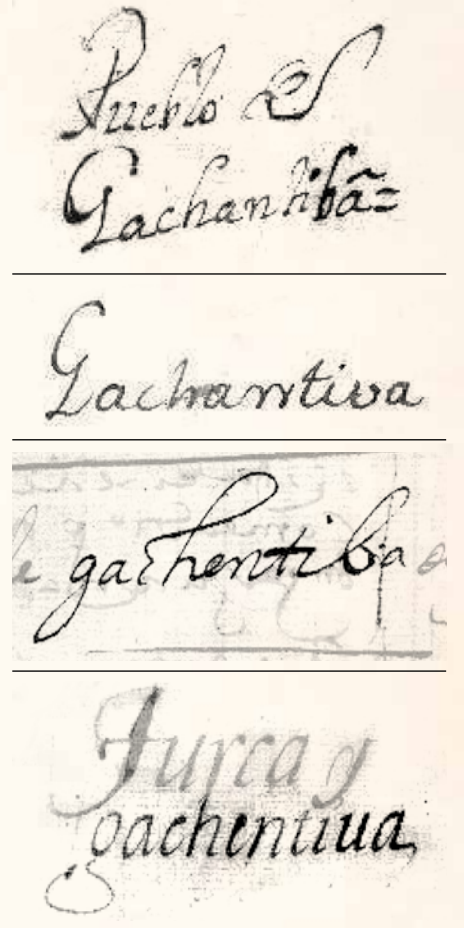 Pueblo de
Gachantibã=
Gachantiva
gachentiba
Turca y
gachentiua